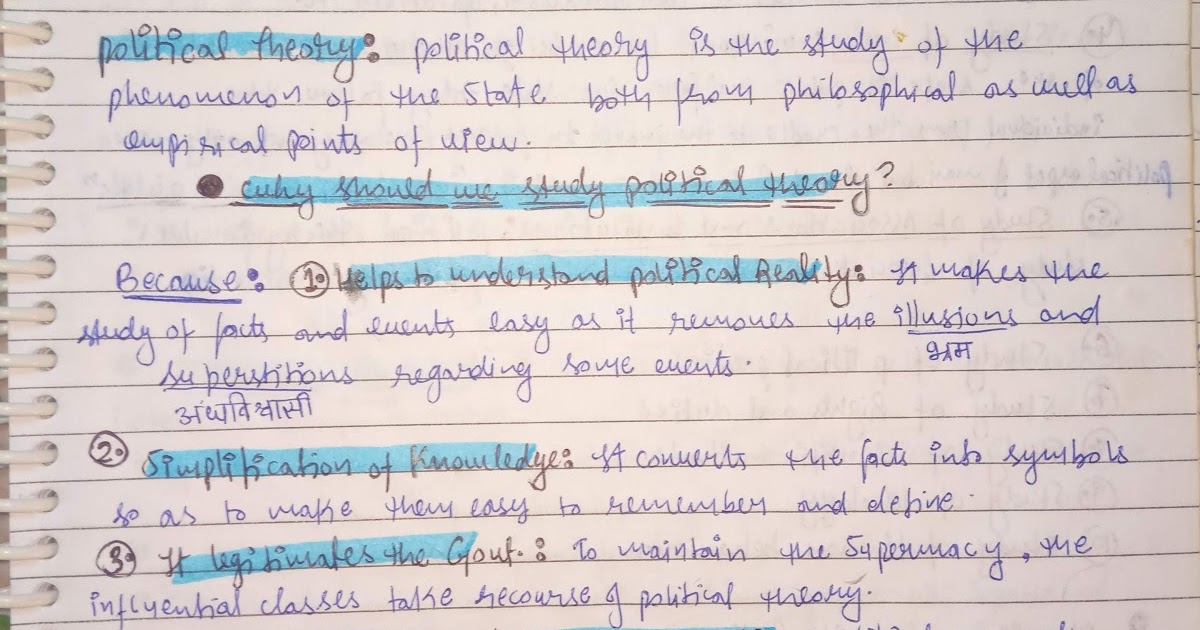 political theory: political theory is the study of the
phenomenon of the State both from philosophical as well as
empirical points of view.
• why should we study political theory?
Because: 1. Helps to understand political Reality: It makes the
study of facts and events easy as it removes the illusions and
भ्रम
superstitions regarding some events.
अंधविश्वासी
2. Simplification of Knowledge: It converts the facts into symbols
so as to make them easy to remember and define.
3. It legitimates the Govt.: To maintain the Supermacy, the
influential classes take recourse of political theory.